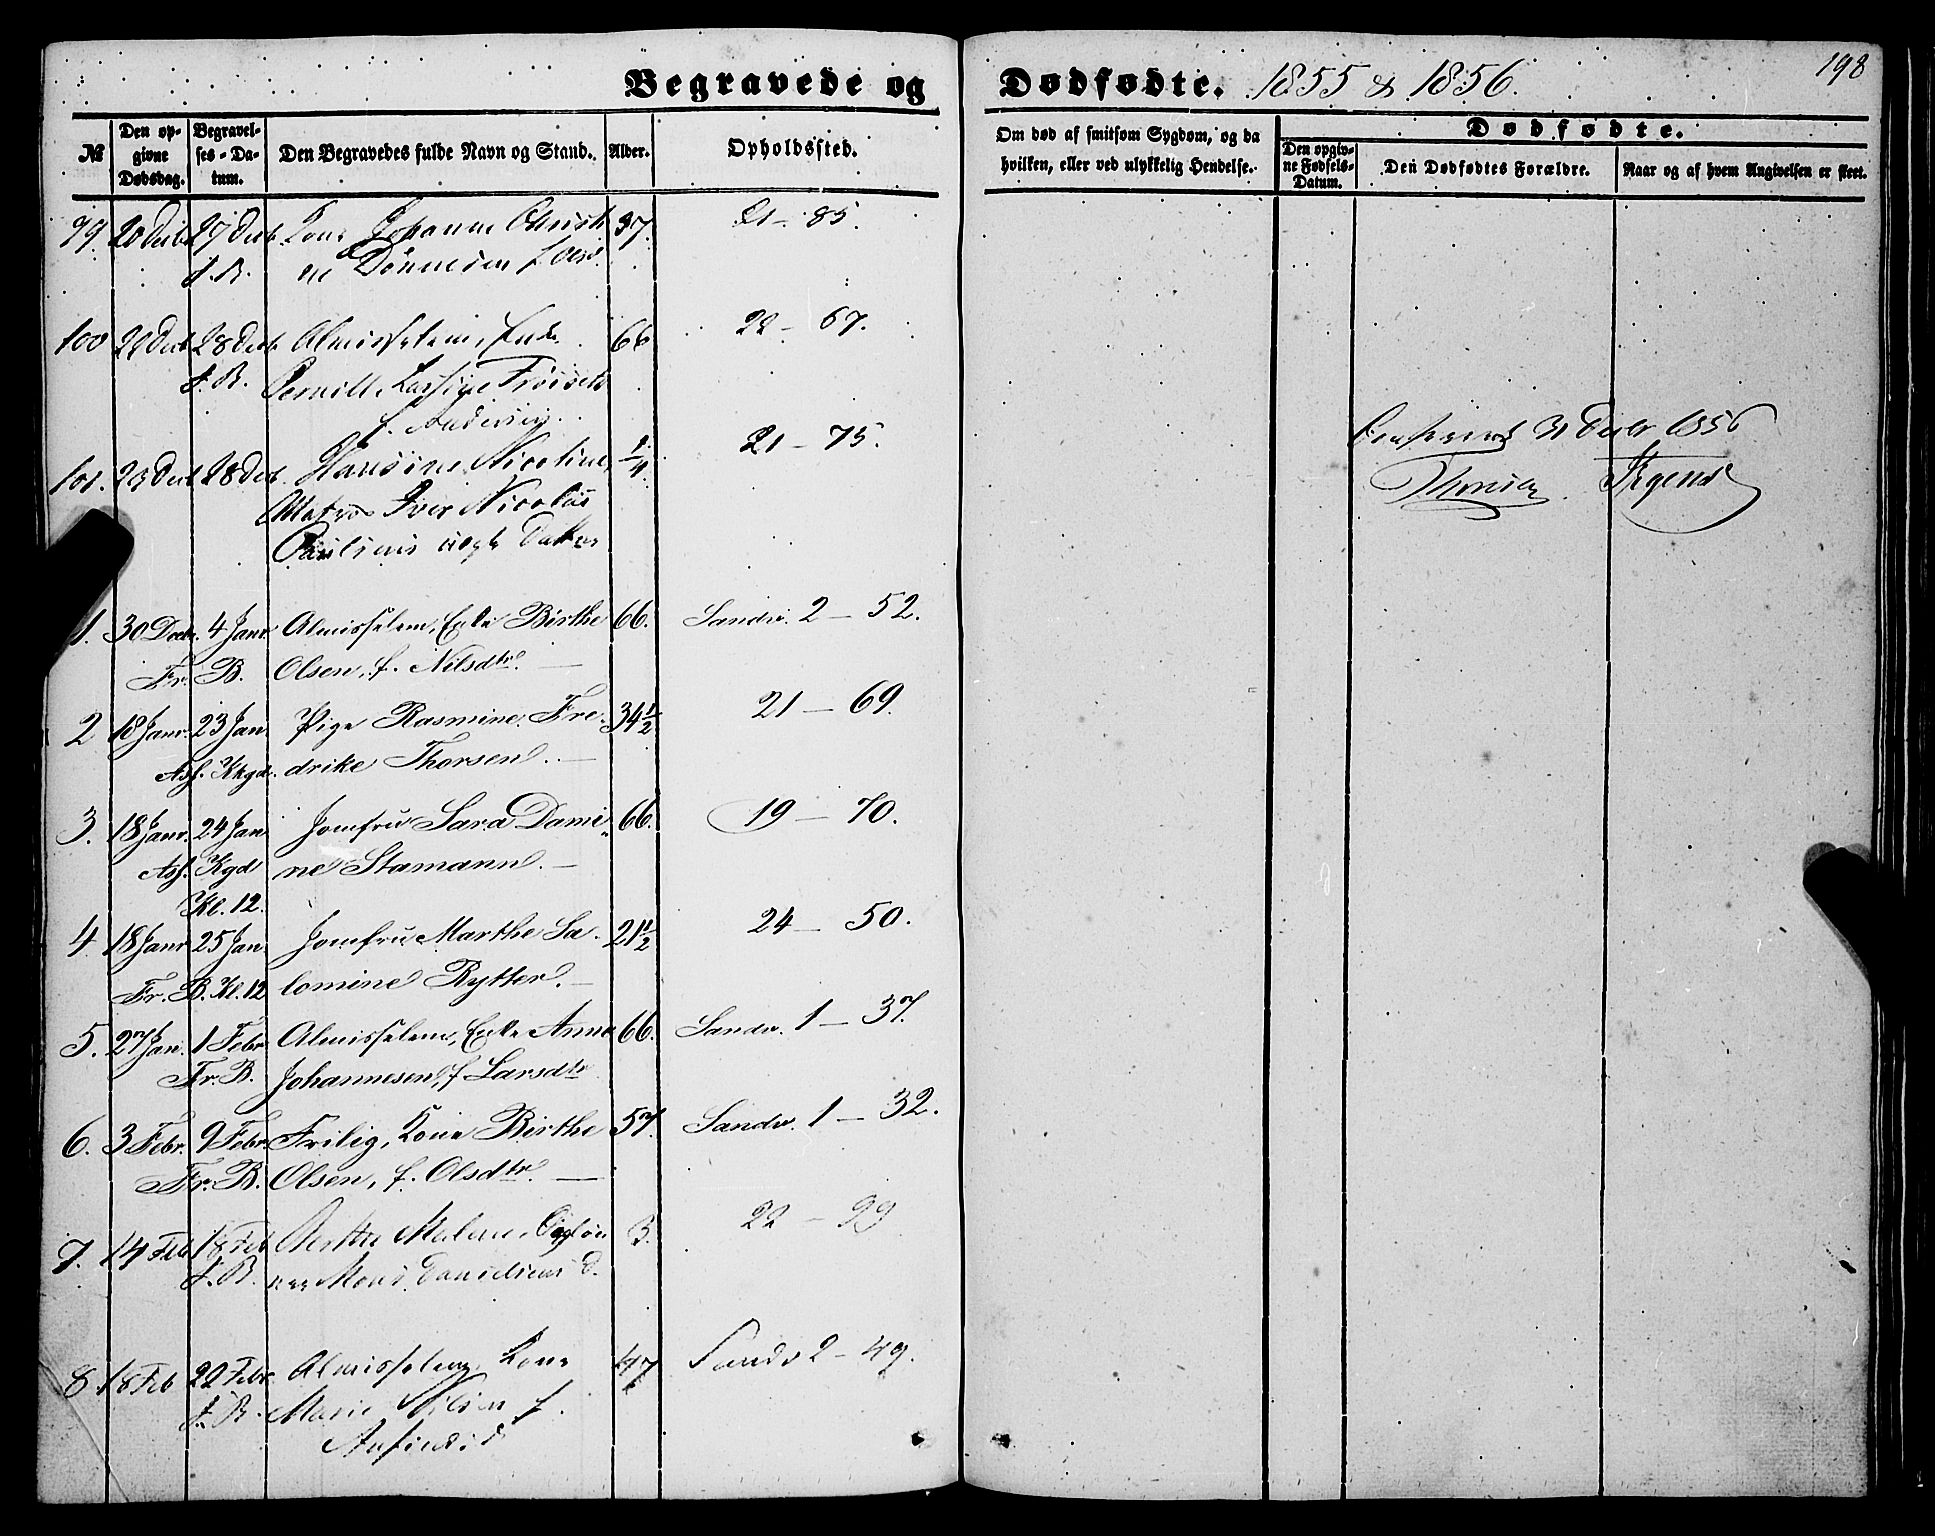 198
Begravede og Dødfødte. 1855 & 1856.
№
Den opgivne Dødsdag.
Begravelses-Datum.
Den Begravedes fulde Navn og Stand.
Alder.
Opholdssted.
Om død af smitsom Sygdom, og da hvilken, eller ved ulykkelig Hendelse.
Dødfødte.
Den opgivne Fødsels-Datum.
Den Dødfødtes Forældre.
Naar og af hvem Angivelsen er skeet.
99. 20 Decb 27 Decb. Kone Johanne Christi 37. 21 - 85.
F. B. ne Dønnesen f.
100 22 Decb 28 Decb. Almisselem, Enke 66 22 - 67.
F. B. Pernille Lassine
f. Andersen.
101. 23 Decb 28 Decb. Hansine Nicoline, 1/4. 21 - 75.
Matros Iver Nicolai
Paulsens uægte Datter
31 Decbr 1856
1. 30 Decbr. 4 Janr. Almisselem, Enke Birthe 66. Sandv. 2 - 52.
Fr. B. Olsen, f. Nilsdtr. —
2 18 Janr. 23 Jan. Pige Rasmine Fre- 34 1/2 21 - 69.
Asf. Kkgd. drike Thorsen. —
3. 18 Janr. 24 Jan. Jomfru Sara Dami- 66. 19 - 70.
Asf. Kgd ne Stamann. —
Kl. 12.
4. 18 Janr 25 Jan. Jomfru Marthe Sa- 21 1/2 24 - 50.
Fr. B. Kl. 12 lomine Rytter. —
5. 27 Jan. 1 Febr. Almisselem, Enke Anna 66. Sandv. 1 - 37.
Fr. B. Johannesen, f Larsdtr
6. 3 Febr. 9 Febr. Frilig, Kone Birthe 57. Sandv. 1 - 32.
Fr. B. Olsen, f. Olsdtr. —
7. 14 Feb 18 Feb Berthe Malene, 3. 22 - 99
F. B. Mons Danielsens D.
8. 18 Feb 22 Febr. Almisselem, Kone 47 Sandv 2 - 49.
F. B. Marie Nilsen f.